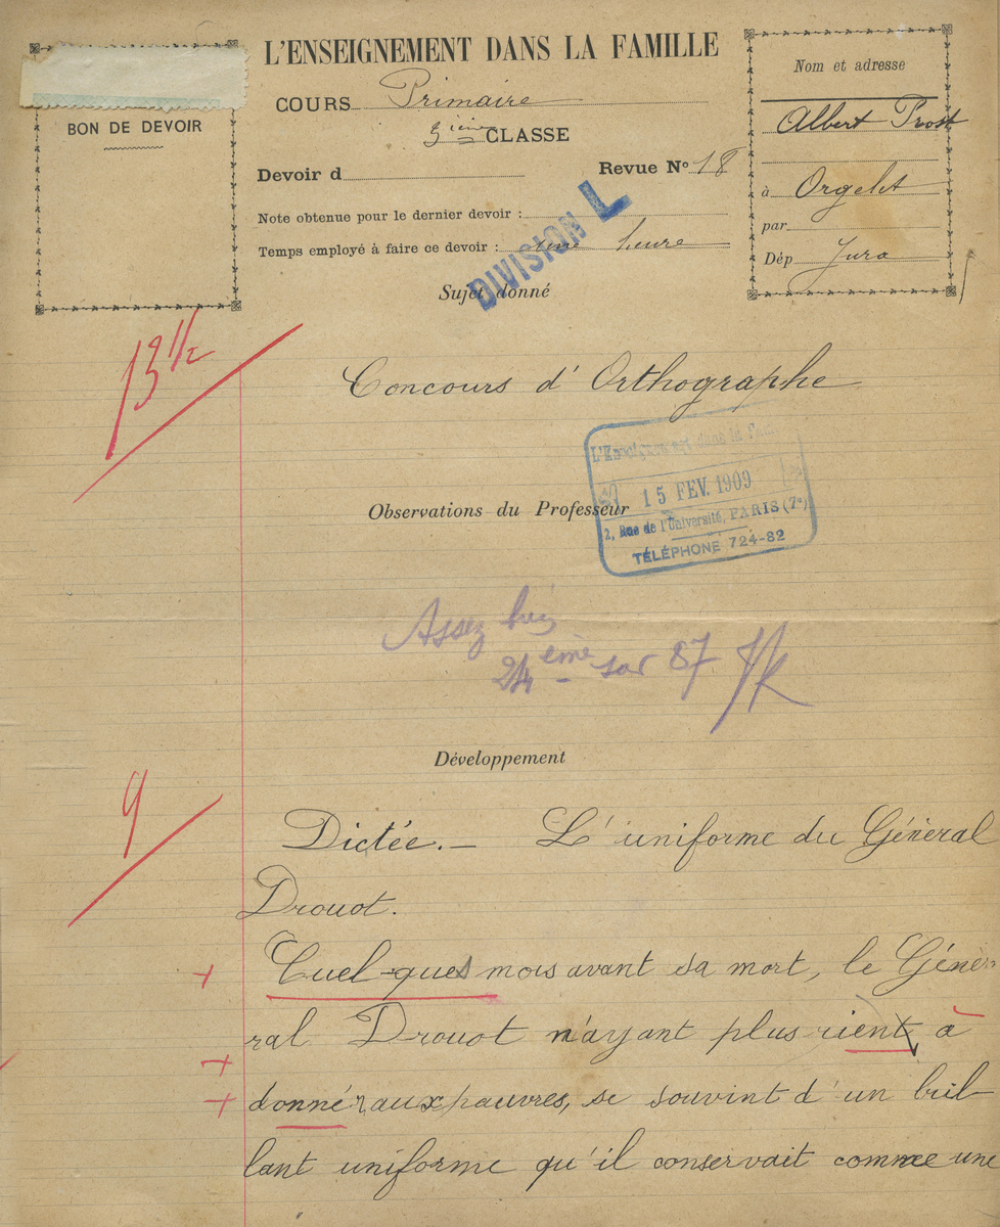 L'ENSEIGNEMENT DANS LA FAMILLE
BON DE DEVOIR
COURS Primaire
5ième CLASSE
Devoir d
Revue No 18
Note obtenue pour le dernier devoir :
Temps employé à faire ce devoir : une heure
Nom et adresse
Albert Prost
à Orgelet
par
Dép Jura
DIVISION L
Sujet donné
13 1/2
Concours d'Orthographe
L'Enseignement dans la Fam
15 FEV. 1909
2, Rue de l'Université, PARIS (7e)
TÉLÉPHONE 724-82
Observations du Professeur
Assez bien
24ème sur 87
Développement
9
Dictée.- L'uniforme du Général
Drouot.
Quel-ques mois avant sa mort, le Géné-
ral Drouot n'ayant plus rient à
donné aux pauvres, se souvint d'un bril-
lant uniforme qu'il conservait comme une